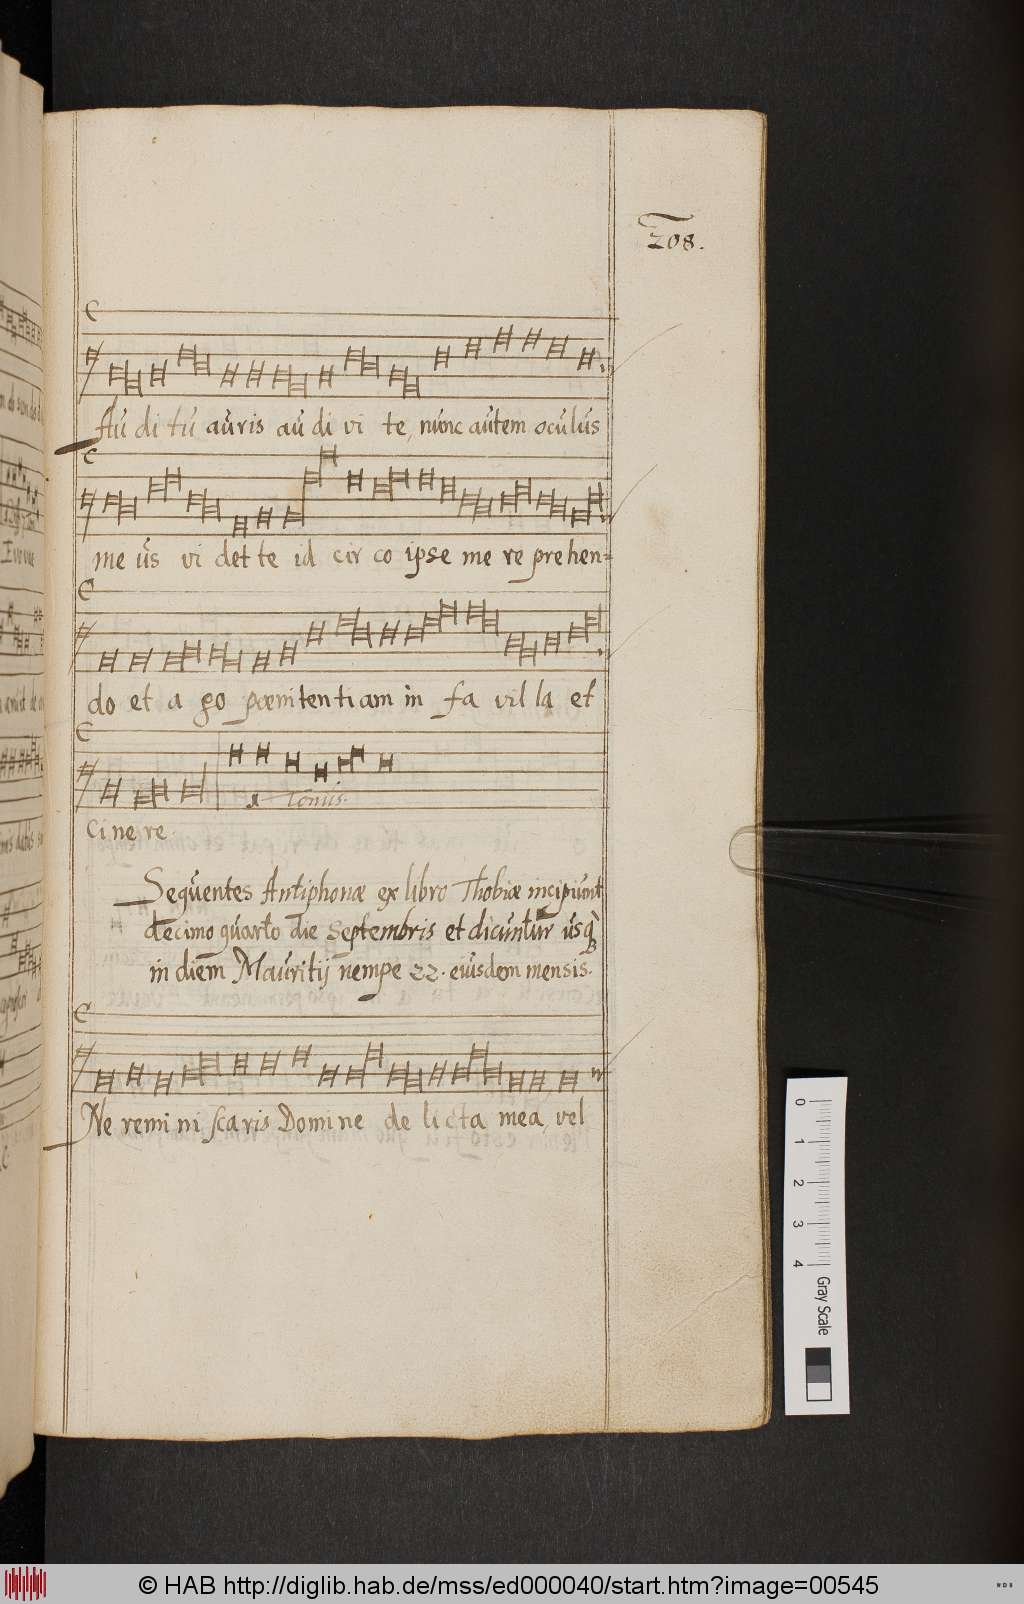 208.
Au di tu auris au di vi te, nunc autem oculus
me us vi det te id cir co ipse me re prehen=
do et a go pœnitentiam in fa vil la et
Tonus.
Ci ne re
Sequentes Antiphonæ ex libro Thobiæ incipiunt
decimo quarto die Septembris et dicuntur usq
in diem Mauritij nempe 22. eiusdem mensis.
Ne remi ni scaris Domi ne de li cta mea, vel
0 1 2 3 4 Gray Scale
© HAB http://diglib.hab.de/mss/ed000040/start.htm?image=00545